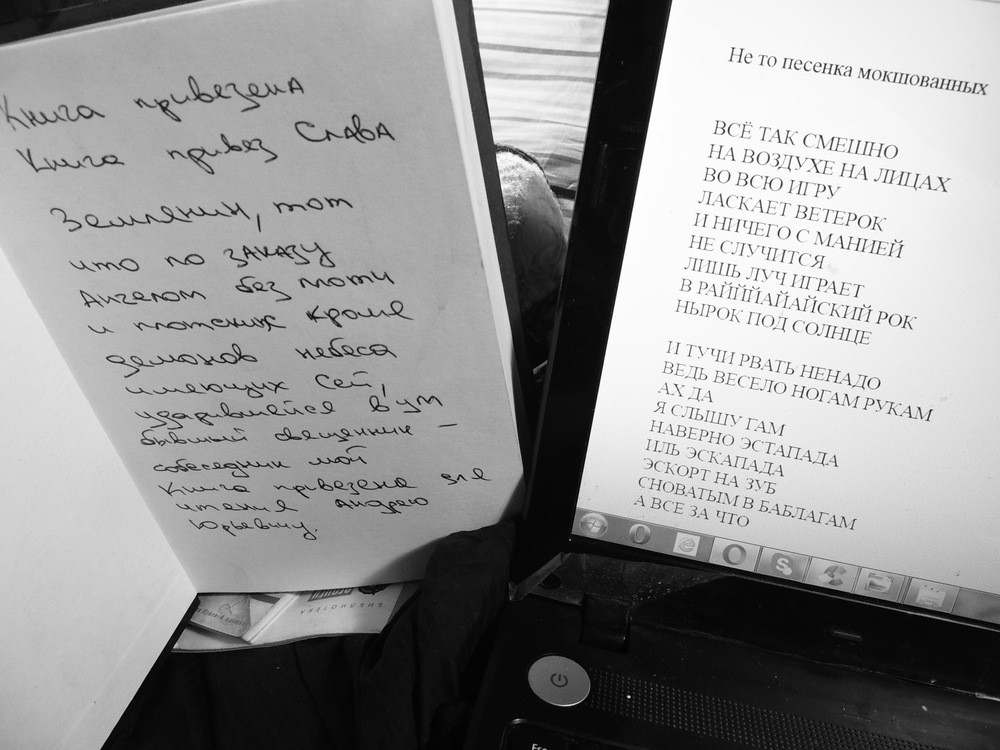 Книга привезена
Книга привез Слава
Землянин, тот
что по заказу
Ангелом без мотни
и плотских кроме
демонов небеса
имеющих сей,
ударившейся в ум
бывший священник –
собеседник мой
Книга привезена для
чтения Андрею
Юрьевичу.
БИБЛИОТЕКА
Не то песенка мокшованных
ВСЁ ТАК СМЕШНО
НА ВОЗДУХЕ НА ЛИЦАХ
ВО ВСЮ ИГРУ
ЛАСКАЕТ ВЕТЕРОК
И НИЧЕГО С МАНИЕЙ
НЕ СЛУЧИТСЯ
ЛИШЬ ЛУЧ ИГРАЕТ
В РАЙЙЙАЙАЙСКИЙ РОК
НЫРОК ПОД СОЛНЦЕ
И ТУЧИ РВАТЬ НЕНАДО
ВЕДЬ ВЕСЕЛО НОГАМ РУКАМ
АХ ДА
Я СЛЫШУ ГАМ
НАВЕРНО ЭСТАПАДА
ИЛЬ ЭСКАПАДА
ЭСКОРТ НА ЗУБ
СНОВАТЫМ В БАБЛАГАМ
А ВСЕ ЗА ЧТО